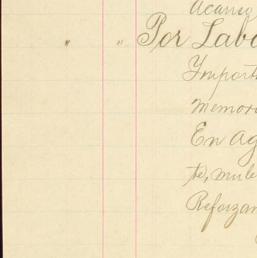 Acarreo
" " Por Labo
Import
memor
En Ag
te, mule
Reforzan